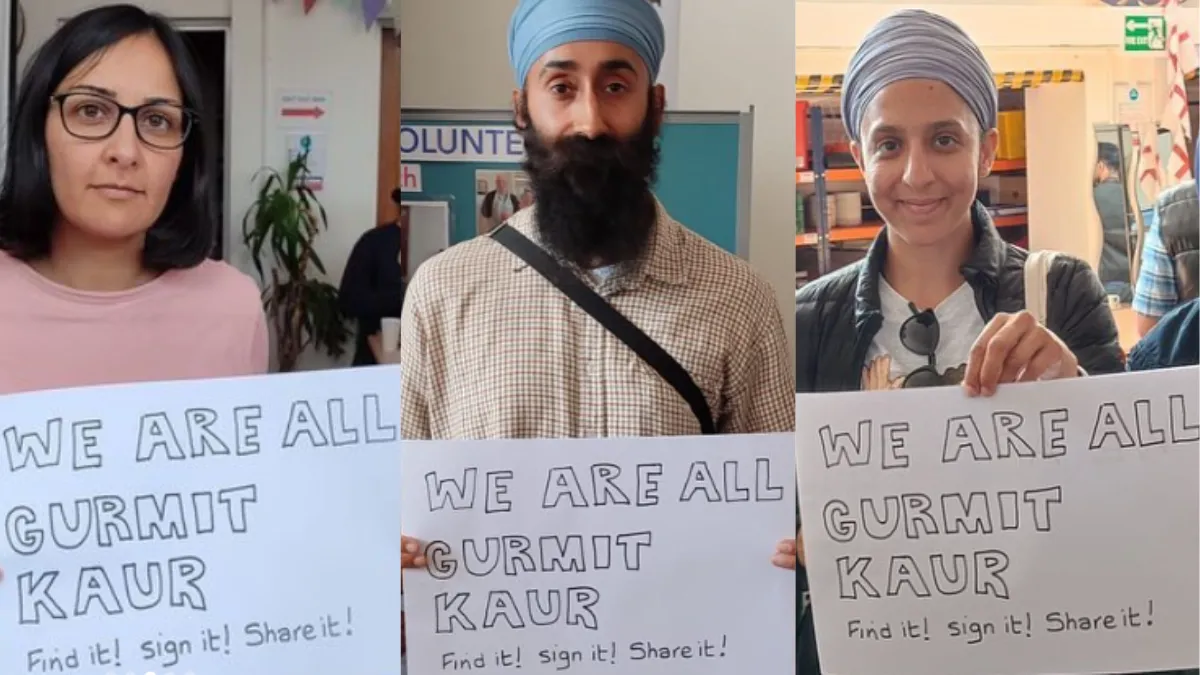 WE ARE ALL
GURMIT
KAUR
Find it! sign it! Share it!
OLUNTE
th
WE ARE ALL
GURMIT
KAUR
Find it! sign it! Share it!
FIRE EXIT
WE ARE ALL
GURMIT
KAUR
Find it! sign it! Share it!